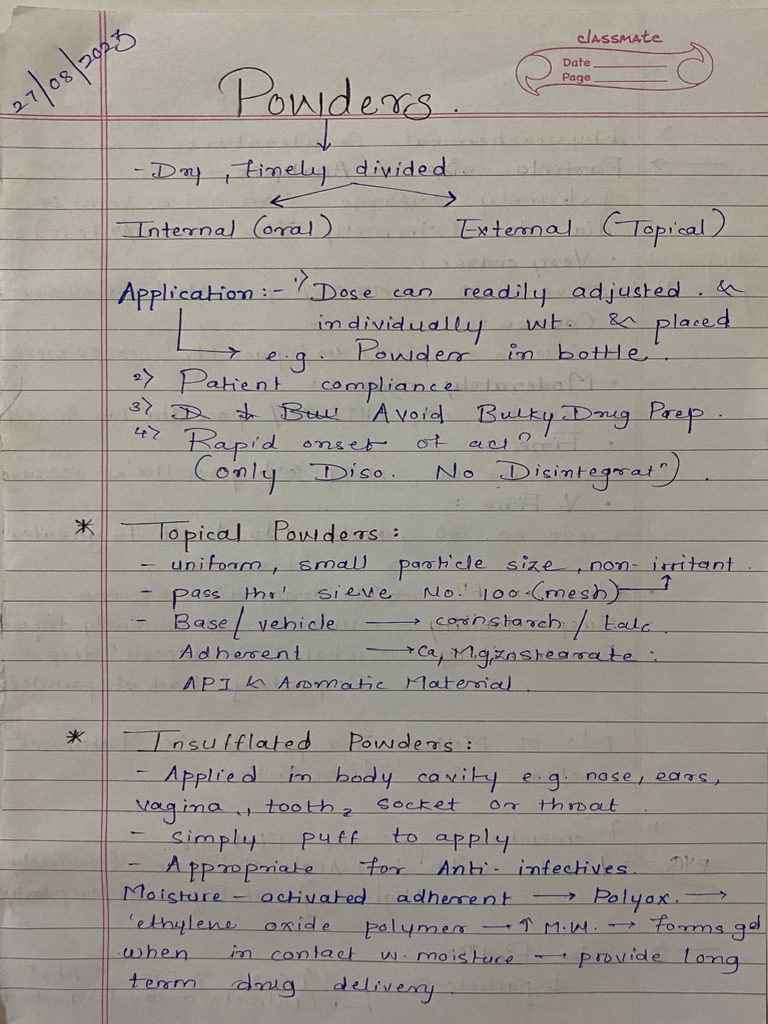 27/08/2023
classmate
Date
Page
Powders.
↓
- Dry, finely divided.
Internal (oral) External (Topical)
Application :- 1) Dose can readily adjusted. &
individually wt. & placed
→ e.g. Powder in bottle.
2) Patient compliance
3) Avoid Bulky Drug Prep.
4) Rapid onset of actⁿ
(only Diso. No Disintegratⁿ).
* Topical Powders :
- uniform, small particle size, non-irritant.
- pass thr' sieve No. 100 (mesh)
- Base/vehicle → cornstarch/talc.
Adherent → Ca, Mg, zn stearate :
API & Aromatic Material.
* Insufflated Powders :
- Applied in body cavity e.g. nose, ears,
vagina, tooth socket or throat.
- simply puff to apply
- Appropriate for Anti-infectives.
Moisture - activated adherent → Polyox. →
'ethylene oxide polymer → ↑ M.W. → forms gel
when in contact w. moisture → provide long
term drug delivery.